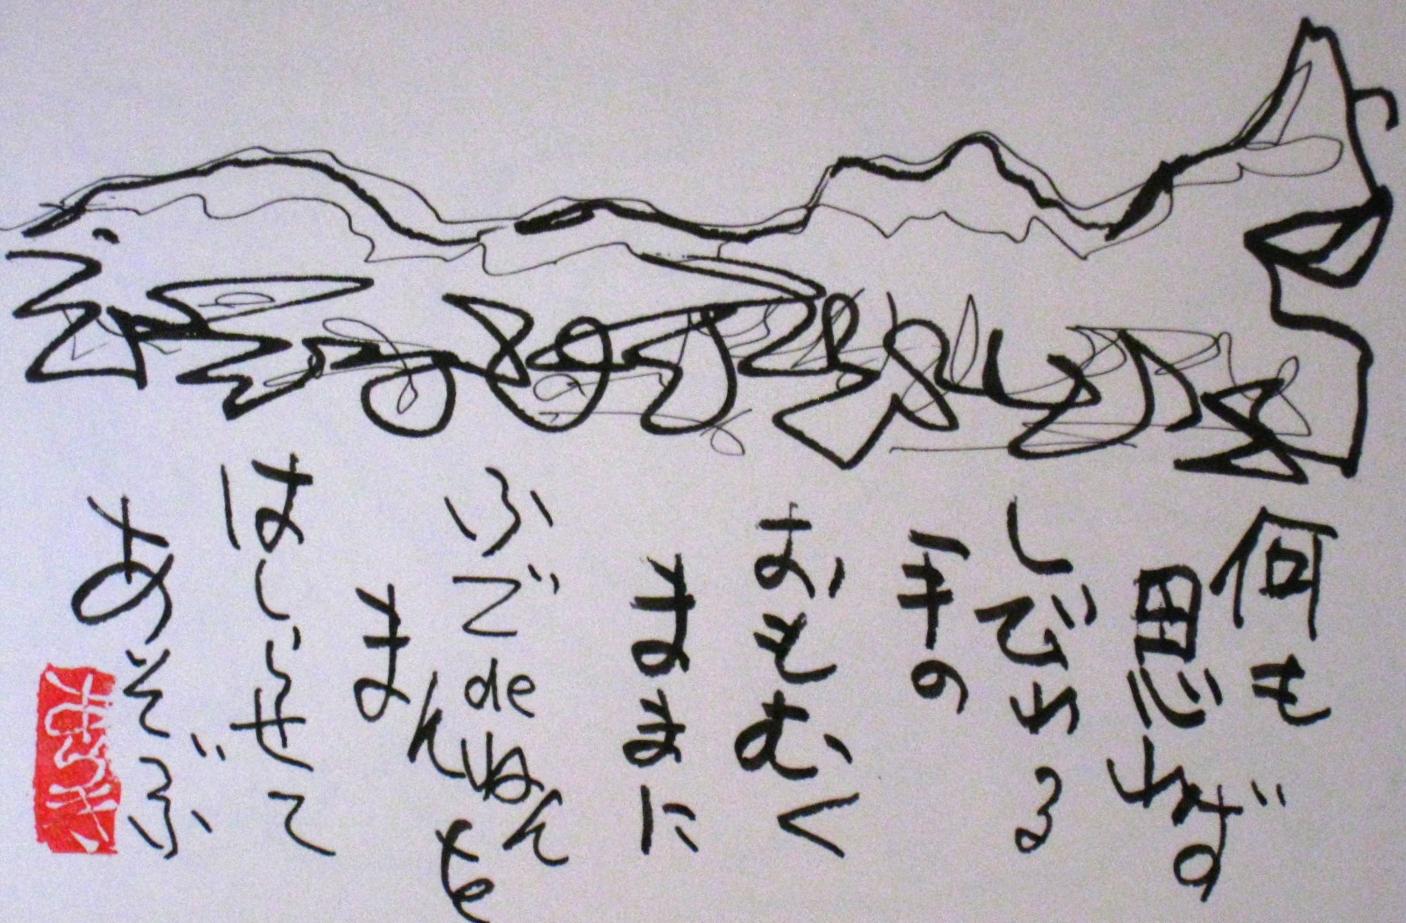 何も
思わず
しびれる
手の
おもむく
ままに
ふでde
まんねんを
はしらせて
あそぶ